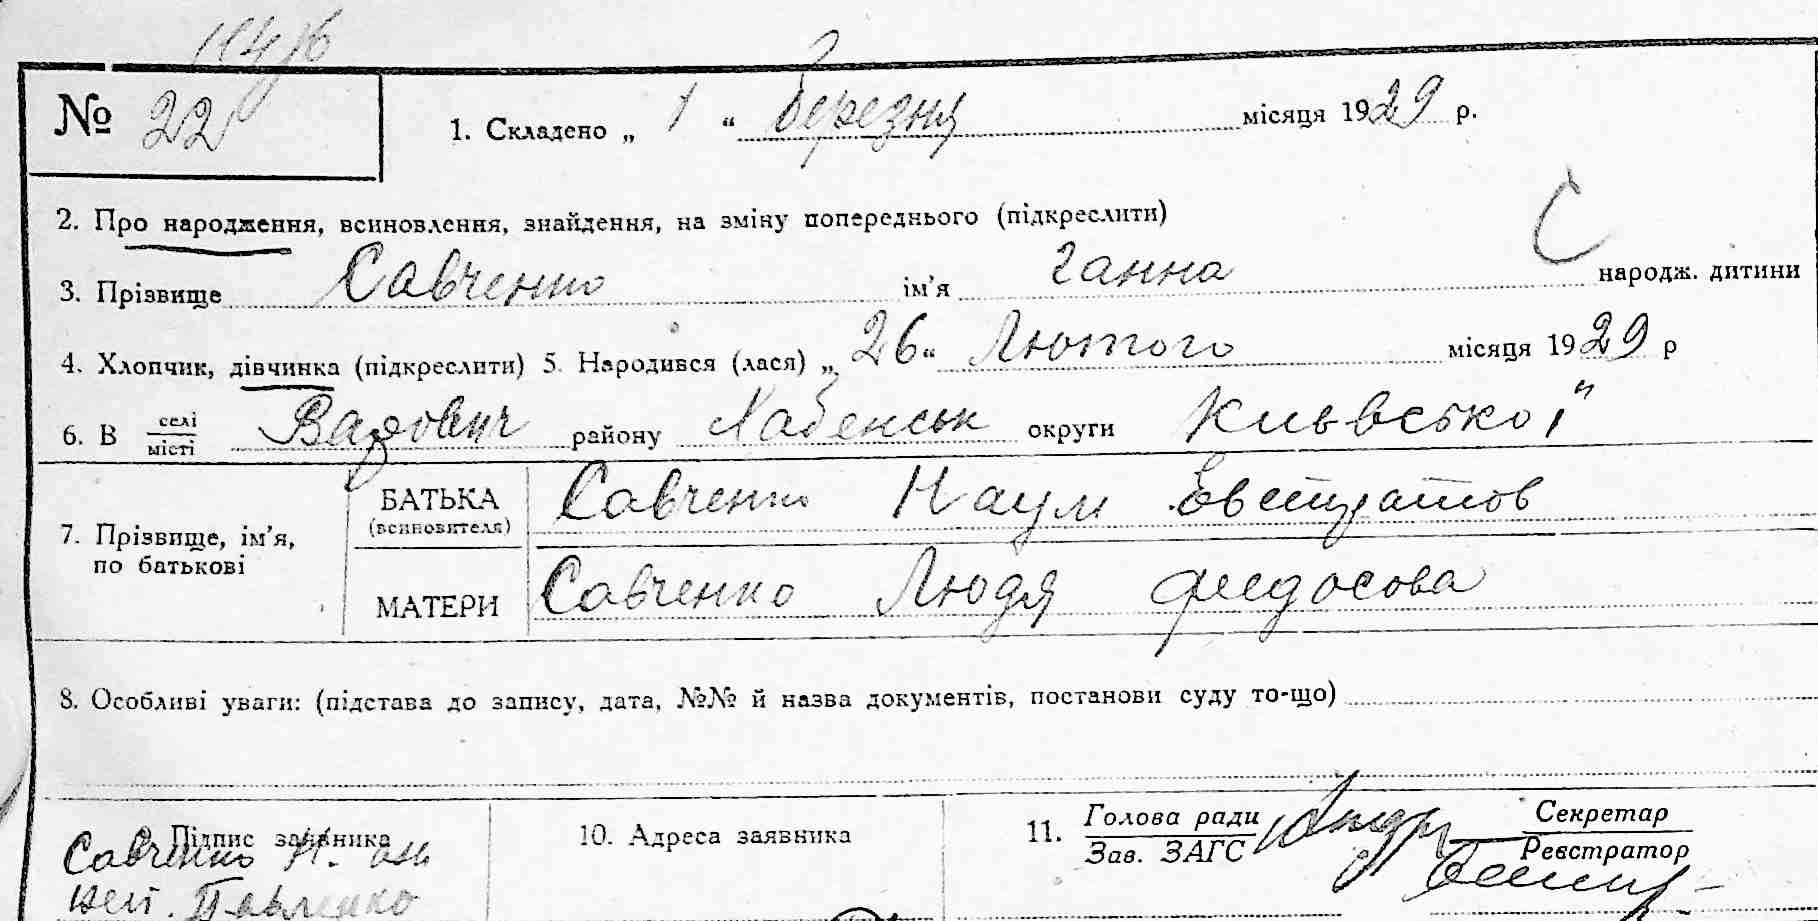 № 22
1. Складено „ 1 “ березня місяця 1929 р.
2. Про народження, всиновлення, знайдення, на зміну попереднього (підкреслити)
С
3. Прізвище Савченко ім’я Ганна народж. дитини
4. Хлопчик, дівчинка (підкреслити) 5. Народився (лася) „ 26 “ Лютого місяця 1929 р
6. В селі/місті Варович району Хабенськ округи Київської
7. Прізвище, ім’я, по батькові
БАТЬКА (всиновителя) Савченко Наум Евстратов
МАТЕРИ Савченко Людя Федосова
8. Особливі уваги: (підстава до запису, дата, №№ й назва документів, постанови суду то-що)
Підпис заявника 10. Адреса заявника 11. Голова ради / Зав. ЗАГС Секретар / Реєстратор
Савченко Н.
Павленко